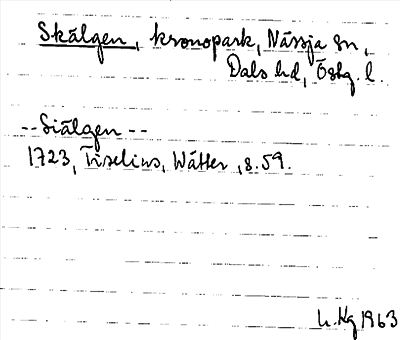 Skälgen, kronopark, Nässja sn,
Dals hd, Östg. l.
--Siälgen--
1723, Tiselius, Wätter, s.59.
1963